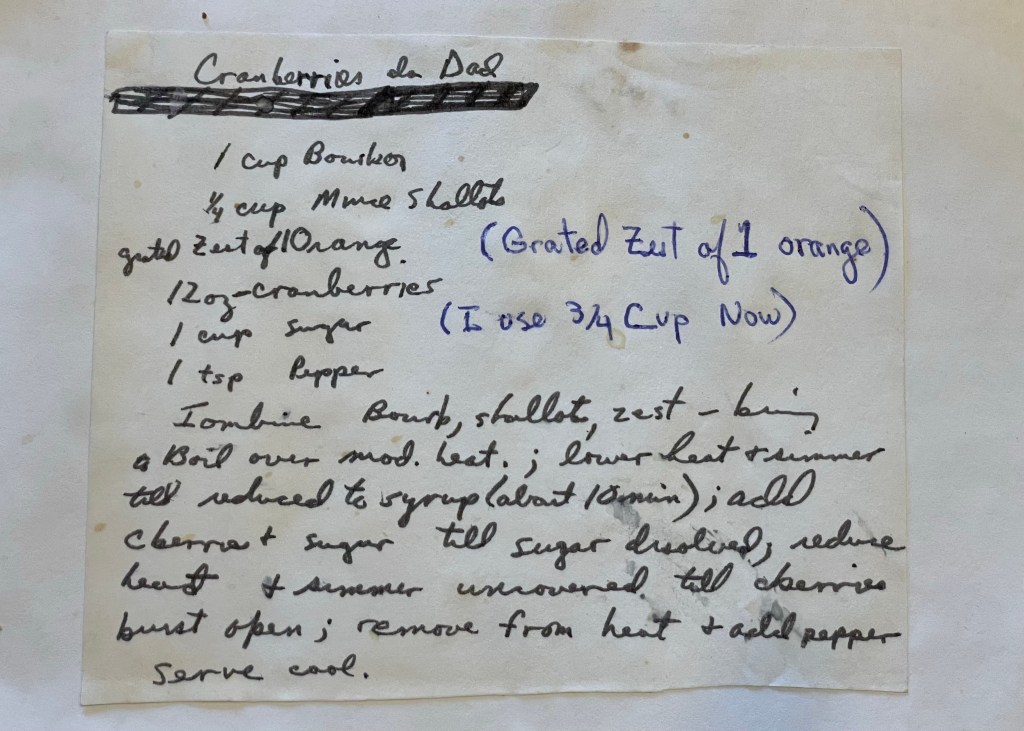 Cranberries da Dad
1 cup Bourbon
1/4 cup Mince Shallots
grated Zest of 1 Orange. (Grated Zest of 1 orange)
12oz-cranberries
1 cup sugar (I use 3/4 Cup Now)
1 tsp Pepper
Combine Bourb, shallots, zest - bring
a Boil over mod. heat. ; lower heat & simmer
till reduced to syrup (about 10 min) ; add
cberries & sugar till sugar dissolved; reduce
heat & simmer uncovered till cberries
burst open ; remove from heat & add pepper
serve cool.